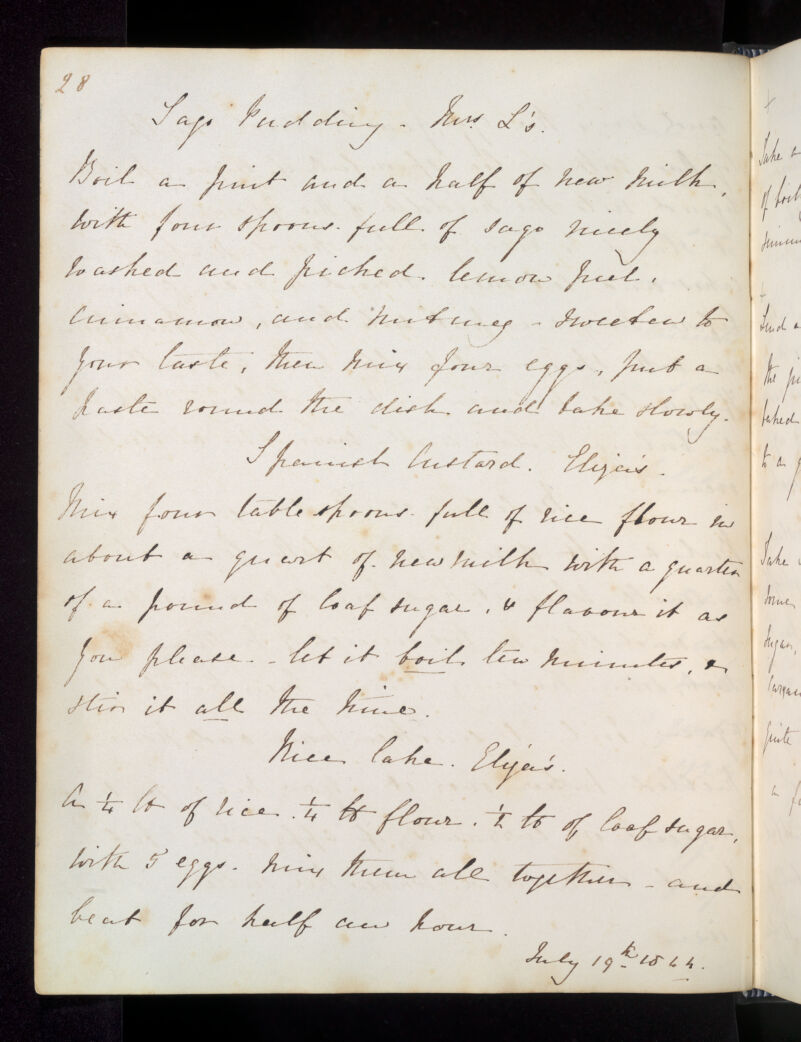 28
Sago Pudding - Mrs. L's.
Boil a pint and a half of new milk,
with four spoons full of sago nicely
washed and picked. lemon peel,
cinnamon, and nutmeg - sweeten to
your taste, then mix four eggs, put a
paste round the dish and bake slowly.
Spanish Custard. Eliza's.
Mix four table spoons full of rice flour in
about a quart of new milk with a quarter
of a pound of loaf sugar, & flavour it as
you please - let it boil ten minutes, &
stir it all the time.
Rice Cake. Eliza's.
A ¼ lb of rice. ¼ lb flour. ½ lb of loaf sugar,
with 5 eggs. mix them all together - and
beat for half an hour.
July 19th 1844.
Take a
of
Send a
the
baked
to a
Take
some
sugar,
quite
a